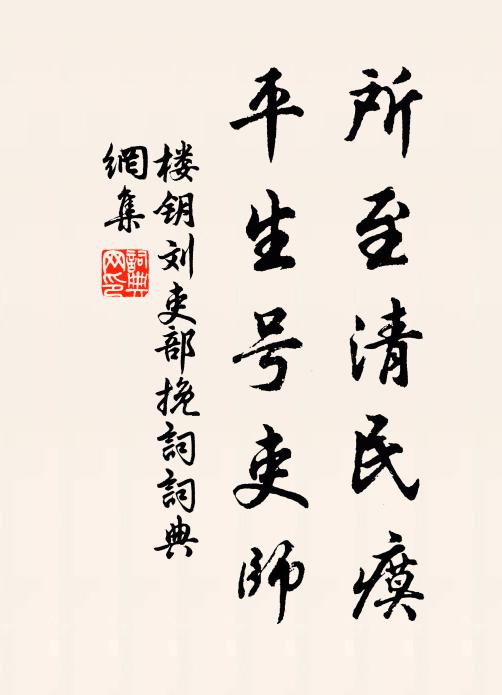 所至清民瘼
平生号吏師
楼钥刘吏部挽詞詞典
網集
詞典网印